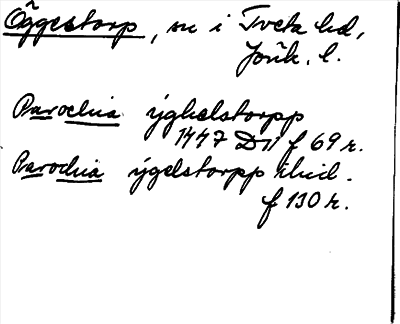 Öggestorp, sn i Tveta hd,
Jönk. l.
Parochia ýghelstorpp
1447 D11 f 69 r.
Parochia ýgelstorpp ibid.
f 130 r.